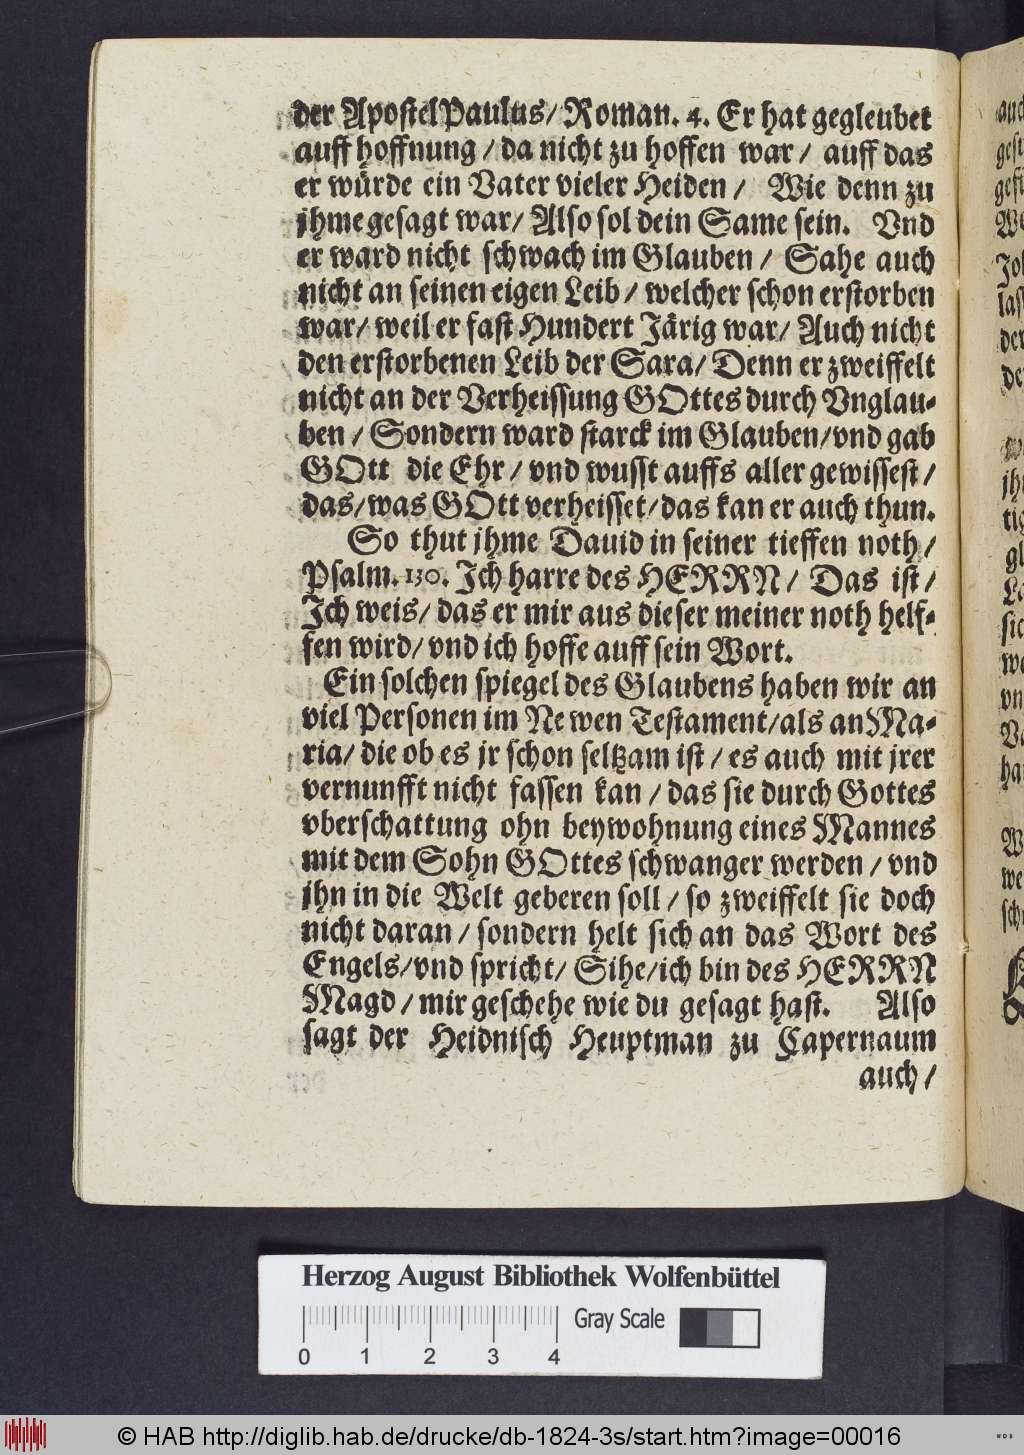 der Apostel Paulus/ Roman. 4. Er hat gegleubet
auff hoffnung / da nicht zu hoffen war / auff das
er würde ein Vater vieler Heiden / Wie denn zu
jhme gesagt war/ Also sol dein Same sein. Vnd
er ward nicht schwach im Glauben / Sahe auch
nicht an seinen eigen Leib / welcher schon erstorben
war/ weil er fast Hundert Järig war/ Auch nicht
den erstorbenen Leib der Sara/ Denn er zweiffelt
nicht an der Verheissung GOttes durch Vnglau-
ben / Sondern ward starck im Glauben/vnd gab
GOtt die Ehr / vnd wusst auffs aller gewissest /
das/was GOtt verheisset/das kan er auch thun.
So thut jhme Dauid in seiner tieffen noth /
Psalm. 130. Ich harre des HERRN / Das ist /
Ich weis/ das er mir aus dieser meiner noth helf-
fen wird/ vnd ich hoffe auff sein Wort.
Ein solchen spiegel des Glaubens haben wir an
viel Personen im Newen Testament/als an Ma-
ria/ die ob es jr schon seltzam ist / es auch mit jrer
vernunfft nicht fassen kan / das sie durch Gottes
vberschattung ohn beywohnung eines Mannes
mit dem Sohn GOttes schwanger werden / vnd
jhn in die Welt geberen soll / so zweiffelt sie doch
nicht daran / sondern helt sich an das Wort des
Engels/vnd spricht/ Sihe/ich bin des HERRN
Magd / mir geschehe wie du gesagt hast. Also
sagt der Heidnisch Heuptman zu Capernaum
auch /
Herzog August Bibliothek Wolfenbüttel
Gray Scale
0 1 2 3 4
© HAB http://diglib.hab.de/drucke/db-1824-3s/start.htm?image=00016